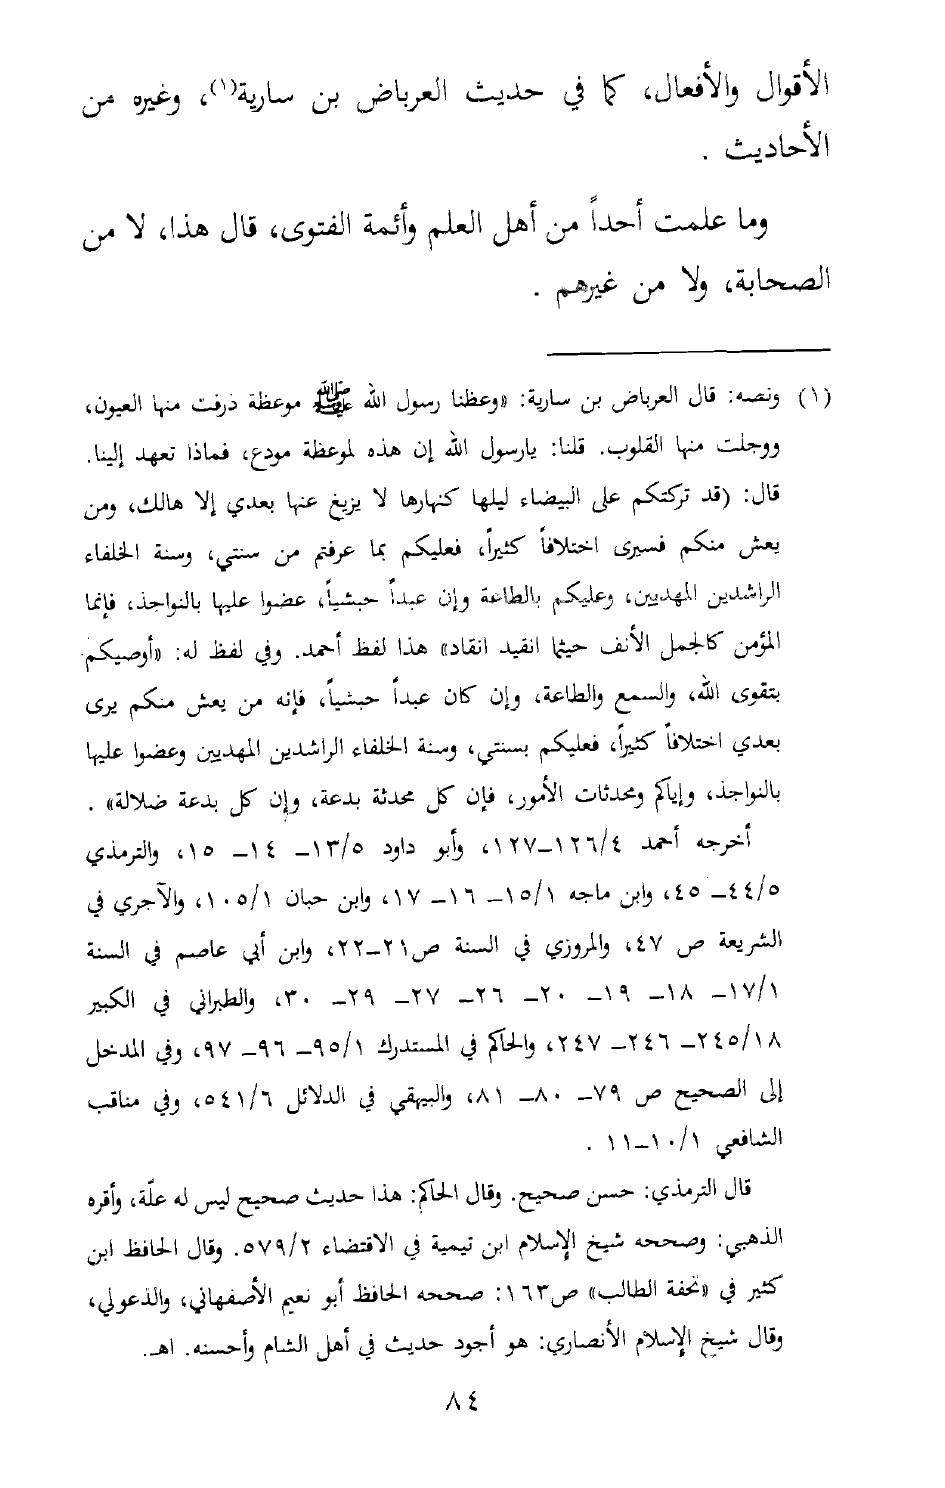 الأقوال والأفعال، كما في حديث العرباض بن سارية(١)، وغيره من
الأحاديث .
وما علمت أحداً من أهل العلم وأئمة الفتوى، قال هذا، لا من
الصحابة، ولا من غيرهم .
(١) ونصه: قال العرباض بن سارية: «وعظنا رسول الله ﷺ موعظة ذرفت منها العيون،
ووجلت منها القلوب. قلنا: يارسول الله إن هذه لموعظة مودع، فماذا تعهد إلينا.
قال: (قد تركتكم على البيضاء ليلها كنهارها لا يزيغ عنها بعدي إلا هالك، ومن
يعش منكم فسيرى اختلافاً كثيراً، فعليكم بما عرفتم من سنتي، وسنة الخلفاء
الراشدين المهديين، وعليكم بالطاعة وإن عبداً حبشياً، عضوا عليها بالنواجذ، فإنما
المؤمن كالجمل الأنف حيثما انقيد انقاد» هذا لفظ أحمد. وفي لفظ له: «أوصيكم
بتقوى الله، والسمع والطاعة، وإن كان عبداً حبشياً، فإنه من يعش منكم يرى
بعدي اختلافاً كثيراً، فعليكم بسنتي، وسنة الخلفاء الراشدين المهديين وعضوا عليها
بالنواجذ، وإياكم ومحدثات الأمور، فإن كل محدثة بدعة، وإن كل بدعة ضلالة» .
أخرجه أحمد ١٢٦/٤–١٢٧، وأبو داود ١٣/٥– ١٤– ١٥، والترمذي
٤٤/٥– ٤٥، وابن ماجه ١٥/١– ١٦– ١٧، وابن حبان ١٠٥/١، والآجري في
الشريعة ص ٤٧، والمروزي في السنة ص٢١–٢٢، وابن أبي عاصم في السنة
١٧/١– ١٨– ١٩– ٢٠– ٢٦– ٢٧– ٢٩– ٣٠، والطبراني في الكبير
٢٤٥/١٨– ٢٤٦– ٢٤٧، والحاكم في المستدرك ٩٥/١– ٩٦– ٩٧، وفي المدخل
إلى الصحيح ص ٧٩– ٨٠– ٨١، والبيهقي في الدلائل ٥٤١/٦، وفي مناقب
الشافعي ١٠/١–١١ .
قال الترمذي: حسن صحيح. وقال الحاكم: هذا حديث صحيح ليس له علّة، وأقره
الذهبي: وصححه شيخ الإسلام ابن تيمية في الاقتضاء ٥٧٩/٢. وقال الحافظ ابن
كثير في «تحفة الطالب» ص١٦٣: صححه الحافظ أبو نعيم الأصفهاني، والدغولي،
وقال شيخ الإسلام الأنصاري: هو أجود حديث في أهل الشام وأحسنه. اهـ.
٨٤